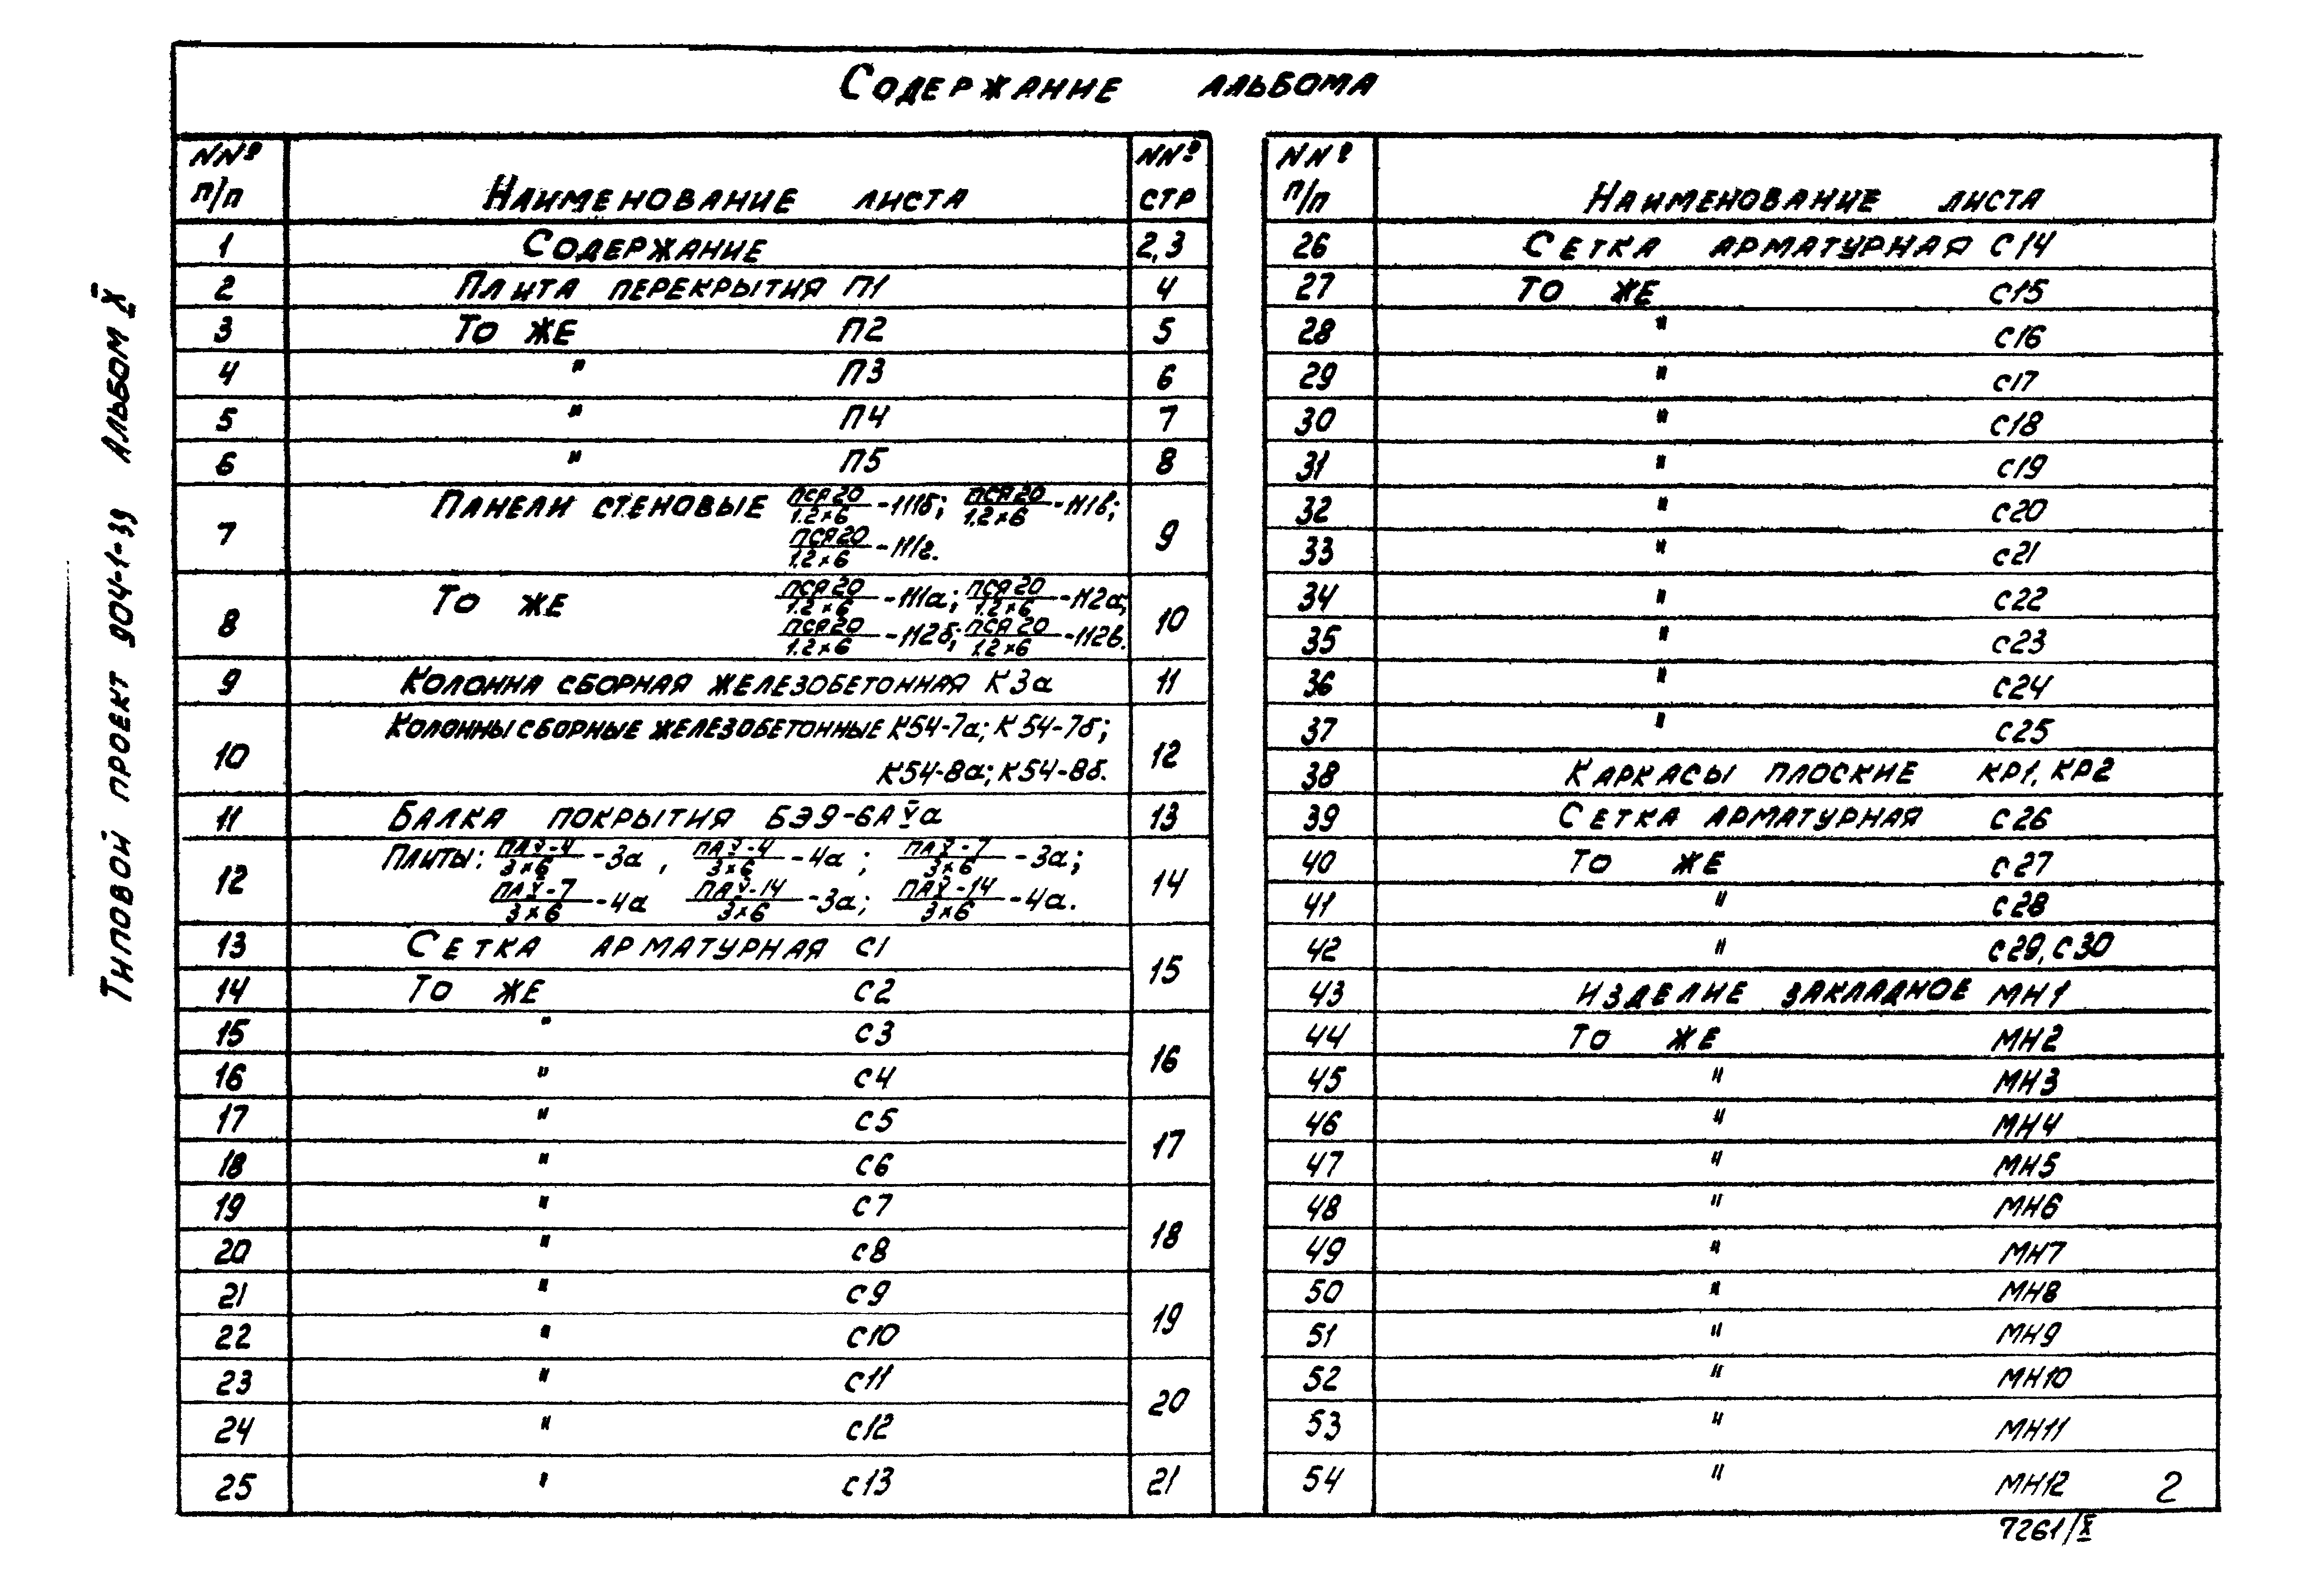 Содержание альбома
NNº п/п Наименование листа NNº стр
1 Содержание 2,3
2 Плита перекрытия П1 4
3 То же П2 5
4 " П3 6
5 " П4 7
6 " П5 8
7 Панели стеновые ПСЯ20/1.2×6-Н1б; ПСЯ20/1.2×6-Н1в; 9
ПСЯ20/1.2×6-Н1г.
8 То же ПСЯ20/1.2×6-Н1а; ПСЯ20/1.2×6-Н2а; 10
ПСЯ20/1.2×6-Н2б; ПСЯ20/1.2×6-Н2в.
9 Колонна сборная железобетонная К3а 11
10 Колонны сборные железобетонные К54-7а; К54-7б; 12
К54-8а; К54-8б.
11 Балка покрытия БЭ9-6АV̅а 13
12 Плиты: ПАV-4/3×6-3а, ПАV-4/3×6-4а; ПАV-7/3×6-3а; 14
ПАV-7/3×6-4а ПАV-14/3×6-3а; ПАV-14/3×6-4а.
13 Сетка арматурная С1 15
14 То же С2
15 " С3 16
16 " С4
17 " С5 17
18 " С6
19 " С7 18
20 " С8
21 " С9 19
22 " С10
23 " С11 20
24 " С12
25 " С13 21
NNº п/п Наименование листа
26 Сетка арматурная С14
27 То же С15
28 " С16
29 " С17
30 " С18
31 " С19
32 " С20
33 " С21
34 " С22
35 " С23
36 " С24
37 " С25
38 Каркасы плоские КР1, КР2
39 Сетка арматурная С26
40 То же С27
41 " С28
42 " С29, С30
43 Изделие закладное МН1
44 То же МН2
45 " МН3
46 " МН4
47 " МН5
48 " МН6
49 " МН7
50 " МН8
51 " МН9
52 " МН10
53 " МН11
54 " МН12
2
7261/X
Типовой проект 904-1-39 Альбом X